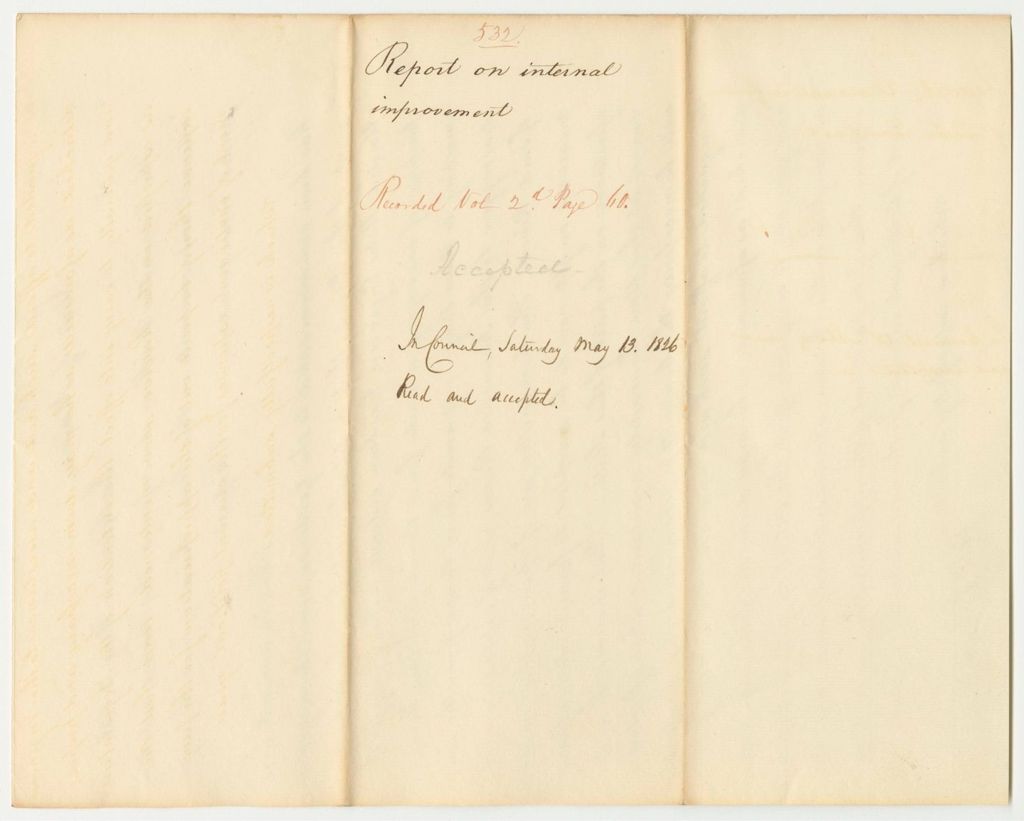 532
Report on internal
improvement
Recorded Vol 2d Page 60.
Accepted
In Council, Saturday May 13. 1826
Read and accepted.